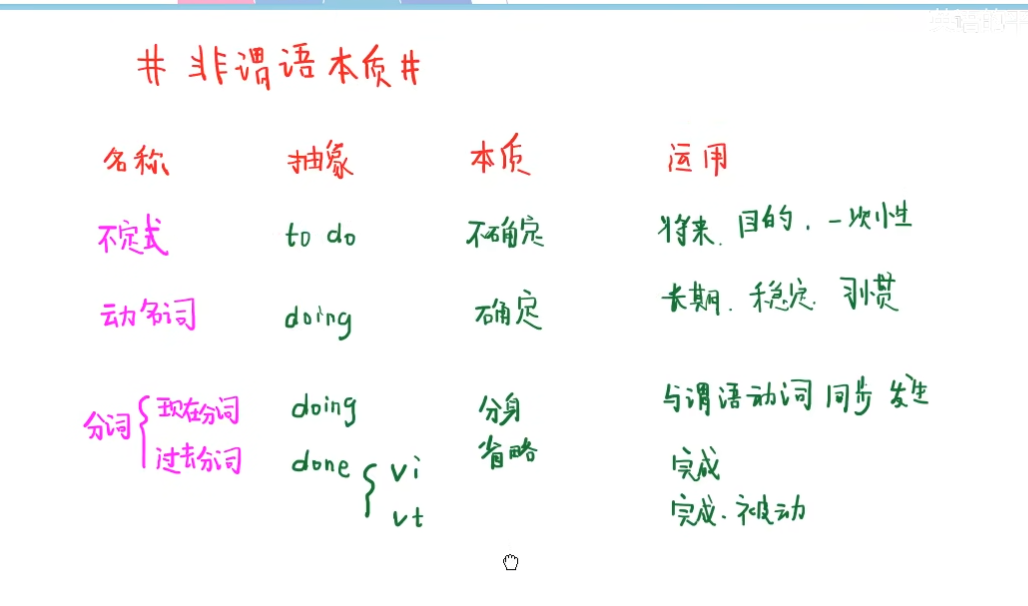 # 非谓语本质#
名称 抽象 本质 运用
不定式 to do 不确定 将来、目的、一次性
动名词 doing 确定 长期、稳定、习惯
分词 { 现在分词 doing 分身 与谓语动词同步发生
过去分词 done { vi 省略 完成
vt 完成、被动